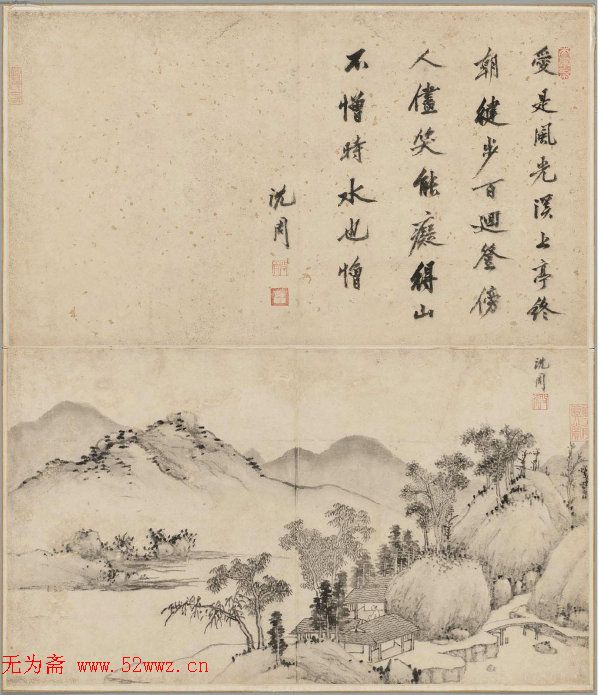 愛是風光溪上亭終
朝徤步百迴登傍
人儘笑能癡得山
不憎時水也憎
沈周
沈周
无为斋 www.52wwz.cn